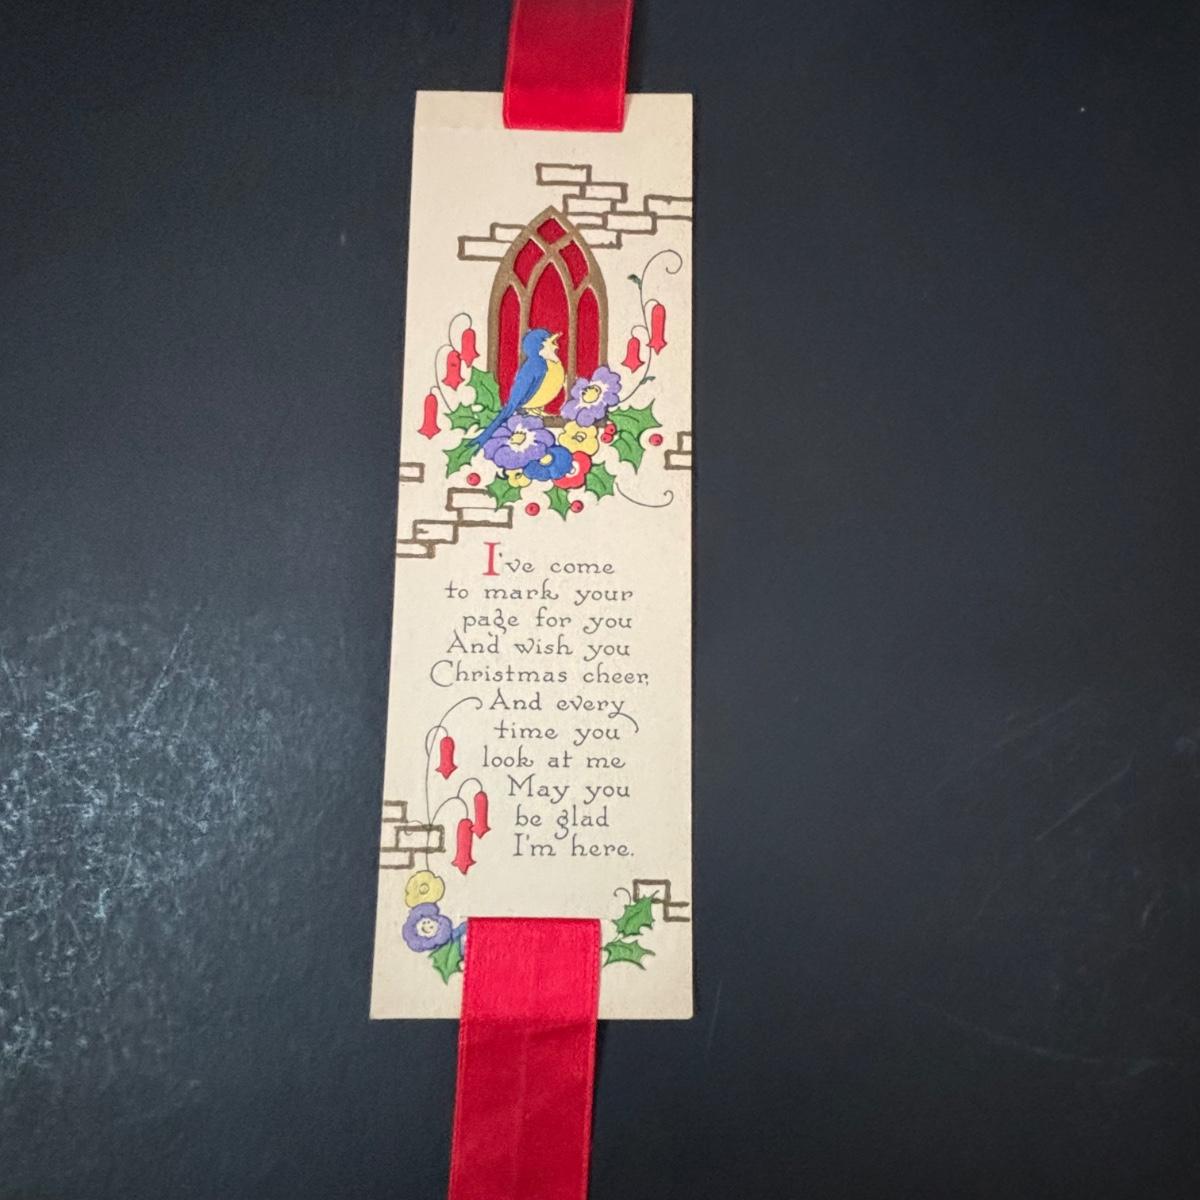 I've come
to mark your
page for you
And wish you
Christmas cheer,
And every
time you
look at me
May you
be glad
I'm here.